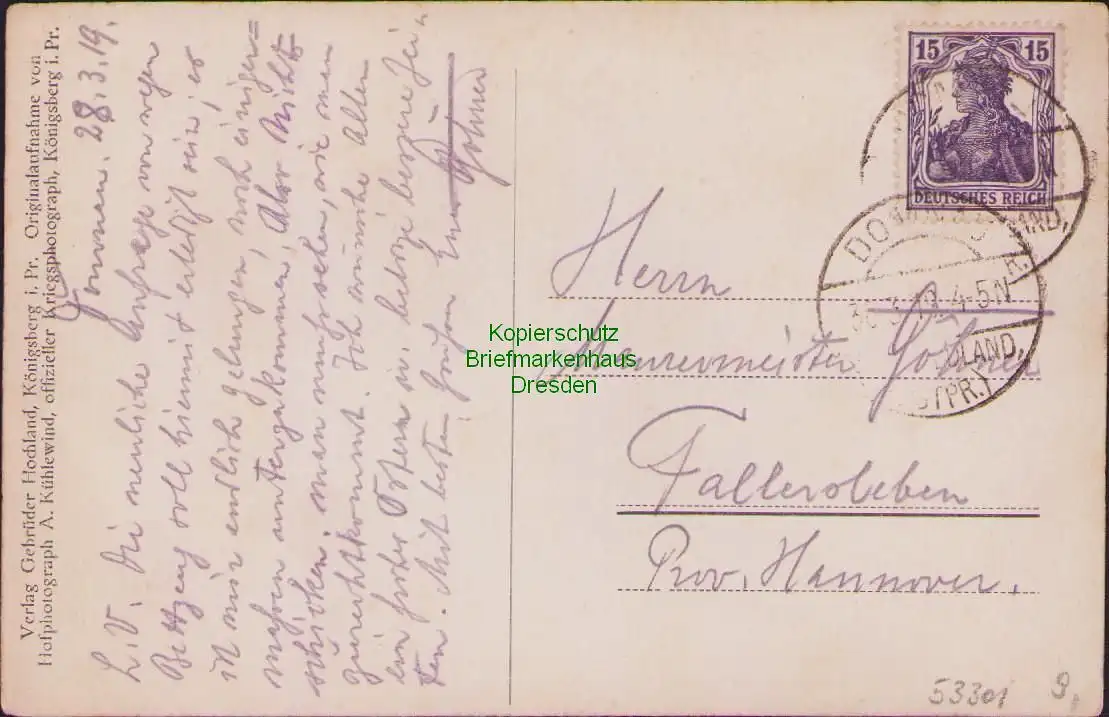 Verlag Gebrüder Hochland, Königsberg i. Pr. Originalaufnahme von
Hofphotograph A. Kühlewind, offizieller Kriegsphotograph, Königsberg i. Pr.
28.3.19.
L. V. Die neuliche Anfrage von wegen
Bettzeug soll hiermit erledigt sein; es
ist mir endlich gelungen, noch einiger=
maßen unterzukommen. Also nicht
schicken; man muß sehen, wie man
zurechtkommt. Ich wünsche Allen
ein frohes Ostern u. baldige bessere Zei=
ten. Mit besten Grüßen
15 15
DEUTSCHES REICH
30.3.19. 4-5N
Herrn
Maurermeister
Fallersleben
Prov. Hannover.
Kopierschutz
Briefmarkenhaus
Dresden
53301 9.